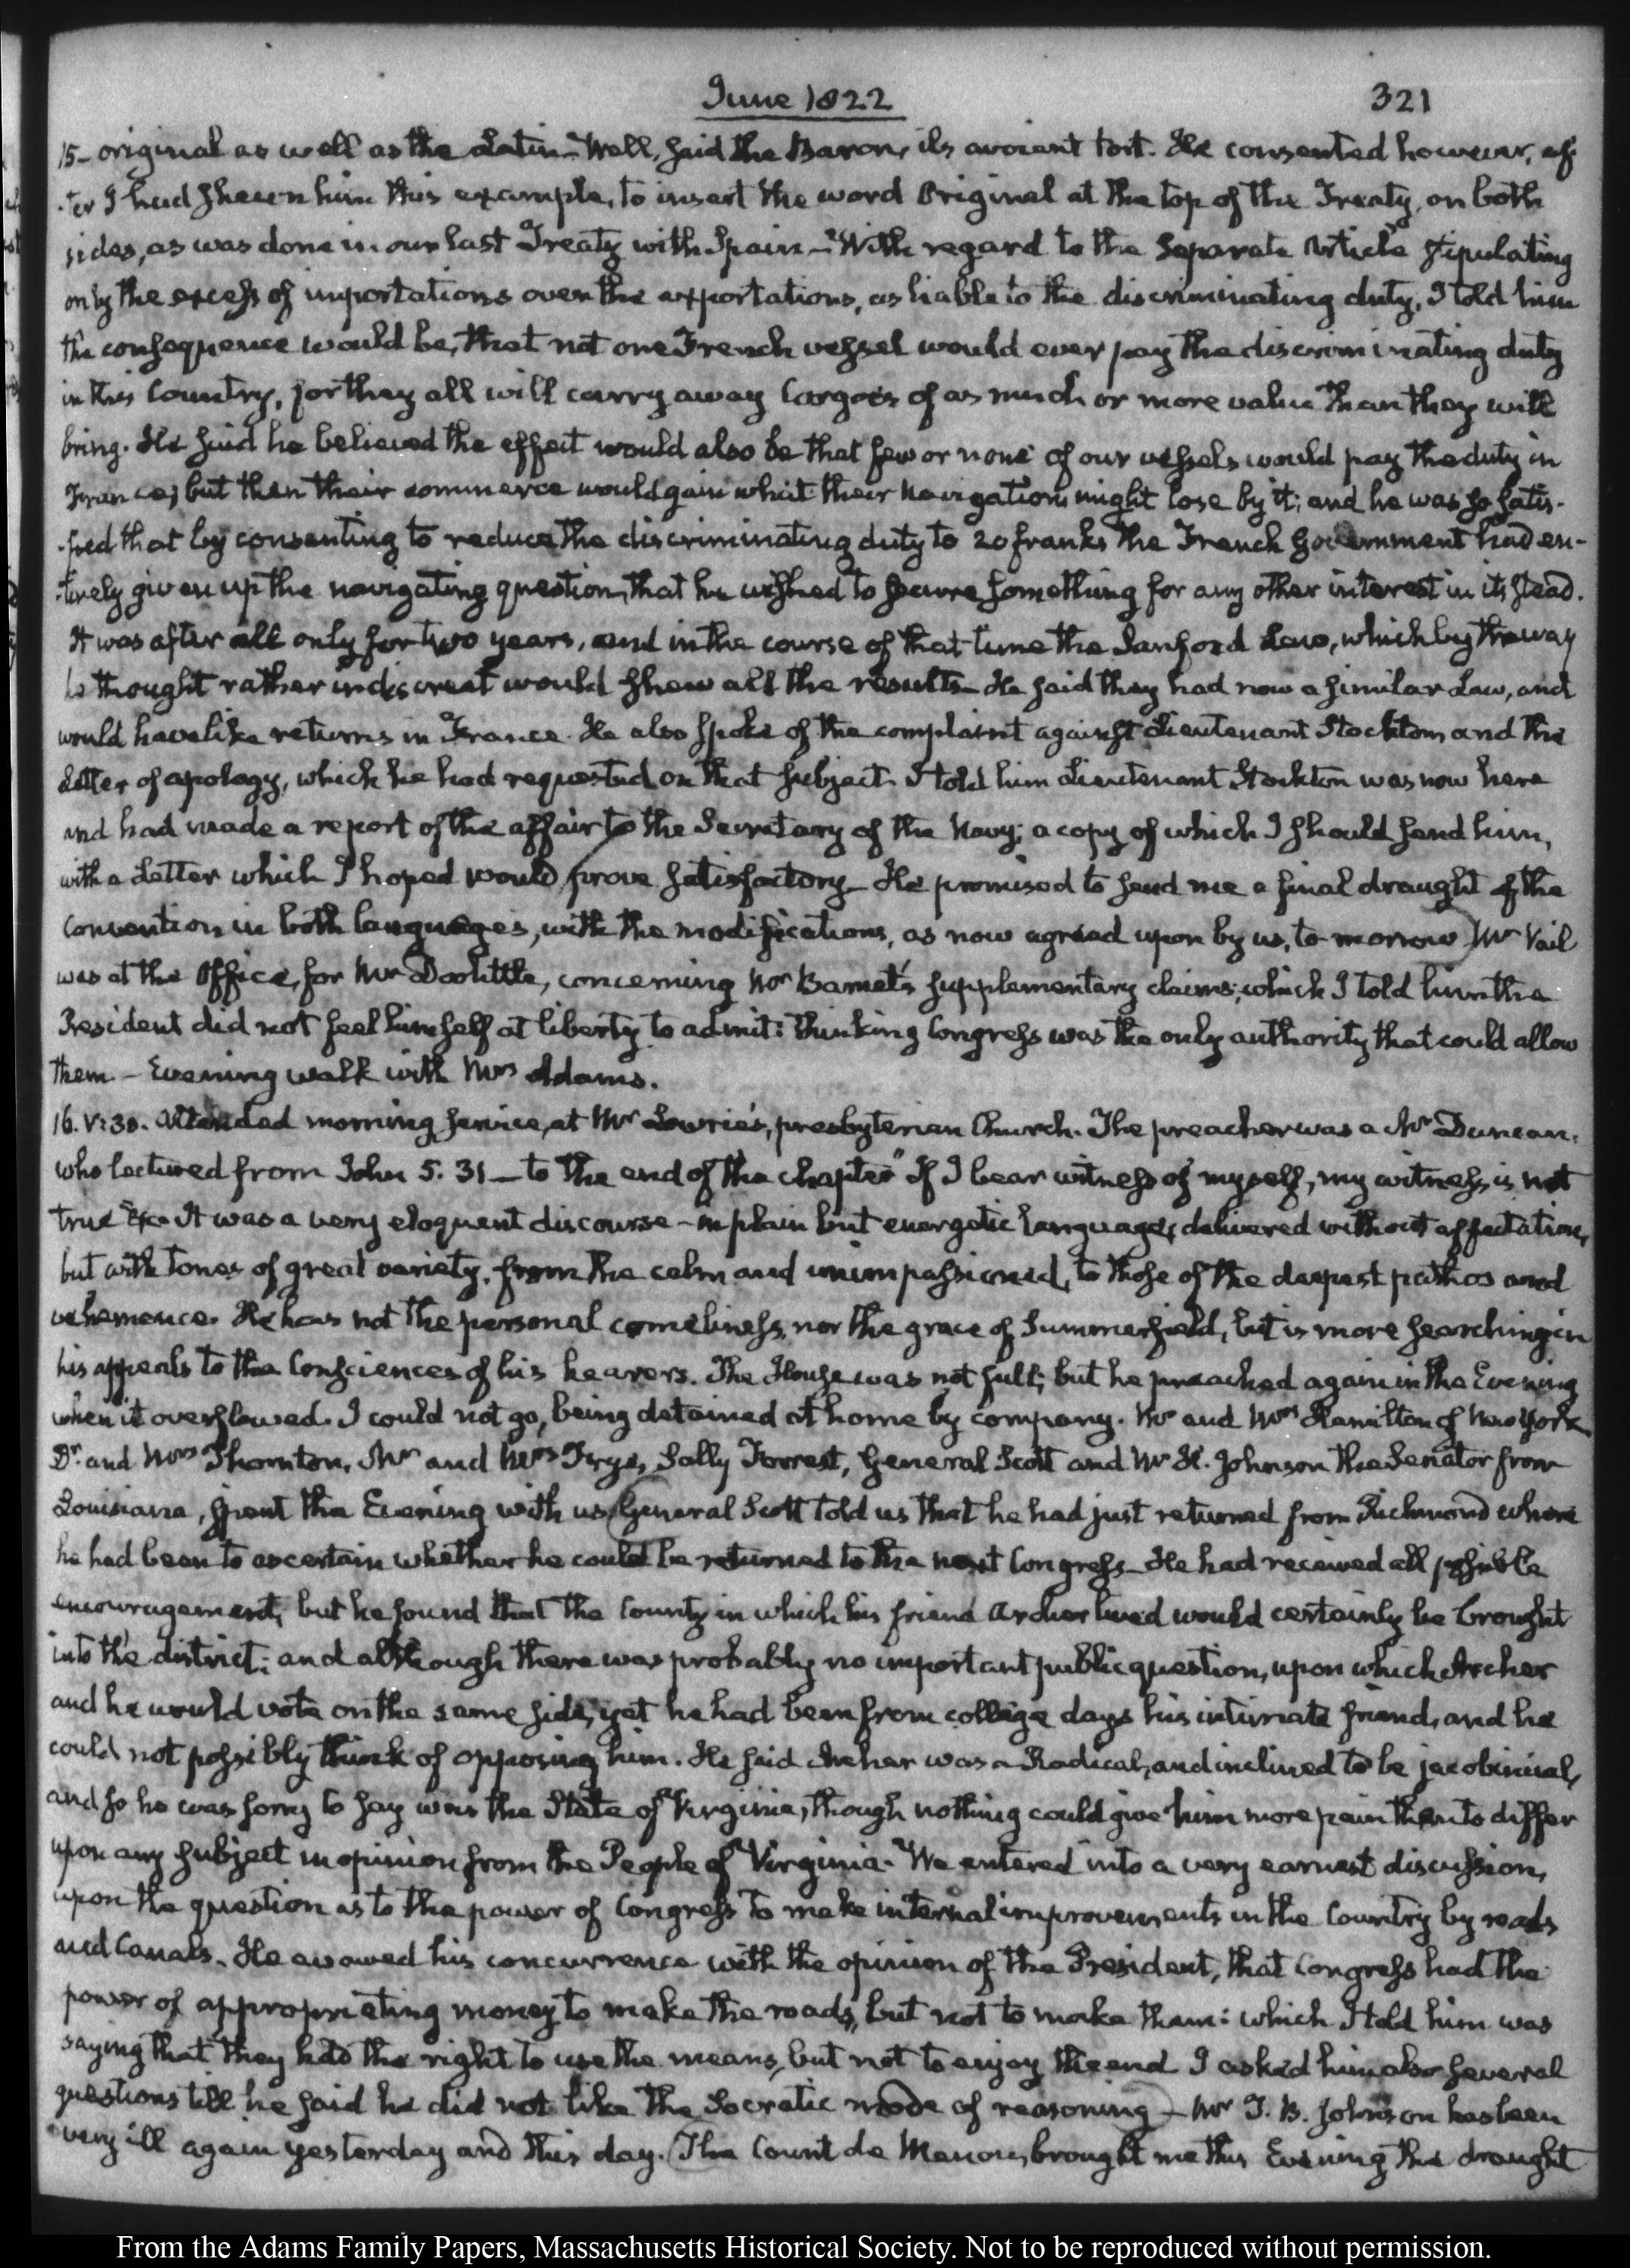 June 1822
321
15– original as well as the Latin– Well, said the Baron, ils avoient tort. He consented however, af-
-ter I had shewn him this example, to insert the word Original at the top of the Treaty, on both
sides, as was done in our last Treaty with Spain– With regard to the Separate Article stipulating
only the excess of importations over the exportations, as liable to the discriminating duty, I told him
the consequence would be, that not one French vessel would ever pay the discriminating duty
in this Country, for they all will carry away Cargoes of as much or more value than they will
bring. He said he believed the effect would also be that few or none of our vessels would pay the duty in
France; but then their commerce would gain what their navigation might lose by it; and he was so satis-
-fied that by consenting to reduce the discriminating duty to 20 franks the French Government had en-
-tirely given up the navigating question, that he wished to secure something for any other interest in its stead.
It was after all only for two years, and in the course of that time the Sanford Law, which by the way
he thought rather indiscreet would shew all the results– He said they had now a similar Law, and
would have like returns in France. He also spoke of the complaint against Lieutenant Stockton, and the
Letter of apology, which he had requested on that subject. I told him Lieutenant Stockton was now here
and had made a report of the affair to the Secretary of the Navy; a copy of which I should send him,
with a Letter which I hoped would prove satisfactory– He promised to send me a final draught of the
Convention in both languages, with the modifications, as now agreed upon by us, to-morrow. Mr Vail
was at the Office, for Mr Doolittle, concerning Mr Barnet's supplementary claims; which I told him the
President did not feel himself at liberty to admit: thinking Congress was the only authority that could allow
them– Evening walk with Mrs Adams.
16. V:30. Attended morning service, at Mr Lowrie's, presbyterian Church. The preacher was a Mr Duncan.
who lectured from John 5. 31– to the end of the chapter "If I bear witness of myself, my witness is not
true" &c. It was a very eloquent discourse– in plain but energetic language, delivered without affectation,
but with tones of great variety, from the calm and unimpassioned, to those of the deepest pathos and
vehemence. He has not the personal comeliness, nor the grace of Summerfield, but is more searching in
his appeals to the Consciences of his hearers. The House was not full; but he preached again in the Evening
when it overflowed. I could not go, being detained at home by company. Mr and Mrs Hamilton of New York
Dr. and Mrs Thornton, Mr and Mrs Frye, Sally Forrest, General Scott and Mr H. Johnson the Senator from
Louisiana, spent the Evening with us. General Scott told us that he had just returned from Richmond where
he had been to ascertain whether he could be returned to the next Congress– He had received all possible
encouragement; but he found that the County in which his friend Archer lived would certainly be brought
into the district; and although there was probably no important public question, upon which Archer
and he would vote on the same side, yet he had been from college days his intimate friend, and he
could not possibly think of opposing him. He said Archer was a Radical, and inclined to be jacobinical,
and so he was sorry to say was the State of Virginia, though nothing could give him more pain than to differ
upon any subject in opinion from the People of Virginia. We entered into a very earnest discussion,
upon the question as to the power of Congress to make internal improvements in the Country by roads
and Canals. He avowed his concurrence with the opinion of the President, that Congress had the
power of appropriating money to make the roads, but not to make them: which I told him was
saying that they had the right to use the means, but not to enjoy the end. I asked him also several
questions till he said he did not like the Socratic mode of reasoning– Mr J. B. Johnson has been
very ill again yesterday and this day. The Count de Menou, brought me this Evening the draught
From the Adams Family Papers, Massachusetts Historical Society. Not to be reproduced without permission.